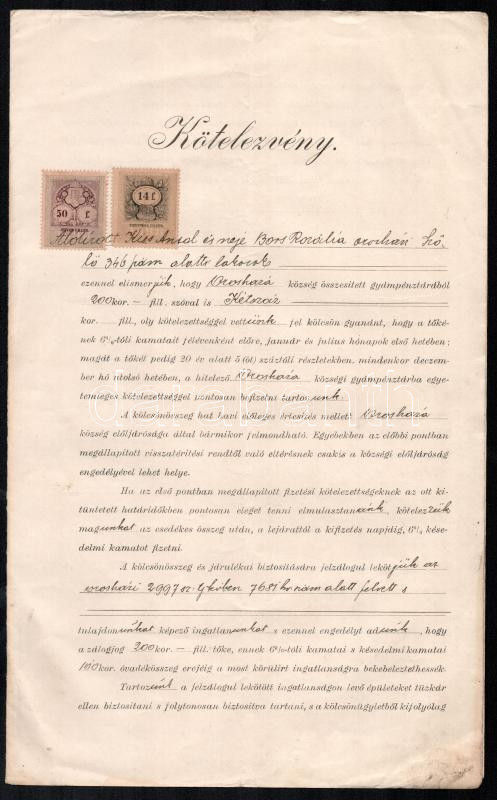 Kötelezvény.
50 f
14 f
Alólírott Kiss Antal és neje Bors Rozália orosházi Sző,
lő 346 szám alatti lakosok
ezennel elismerjük, hogy Orosháza község összesített gyámpénztárából
200 kor. – fill. szóval is Kétszáz
kor. – fill., oly kötelezettséggel vettünk fel kölcsön gyanánt, hogy a tőké-
nek 6%-tóli kamatait félévenként előre, január és julius hónapok első hetében;
magát a tőkét pedig 20 év alatt 5 (öt) száztóli részletekben, mindenkor decem-
ber hó utolsó hetében, a hitelező Orosháza községi gyámpénztárba egye-
temleges kötelezettséggel pontosan befizetni tartozunk.
A kölcsönösszeg hat havi előleges értesítés mellett Orosháza
község előljárósága által bármikor felmondható. Egyebekben az előbbi pontban
megállapított visszatérítési rendtől való eltérésnek csakis a községi előljáróság
engedélyével lehet helye.
Ha az első pontban megállapított fizetési kötelezettségeknek az ott ki-
tüntetett határidőkben pontosan eleget tenni elmulasztanánk, kötelezzük
magunkat az esedékes összeg után, a lejárattól a kifizetés napjáig, 6% kése-
delmi kamatot fizetni.
A kölcsönösszeg és járulékai biztosítására jelzálogul lekötjük az
orosházi 2997 sz. tjkvben 7681 hr. szám alatt felvett s
tulajdonunkat képező ingatlanunkat s ezennel engedélyt adunk, hogy
a zálogjog 200 kor. – fill. tőke, ennek 6%-tóli kamatai s késedelmi kamatai
100 kor. óvadékösszeg erejéig a most körülirt ingatlanságra bekebeleztethessék.
Tartozunk a jelzálogul lekötött ingatlanságon levő épületeket tűzkár
ellen biztosítani s folytonosan biztosítva tartani, s a kölcsönügyletből kifolyólag
darabanth